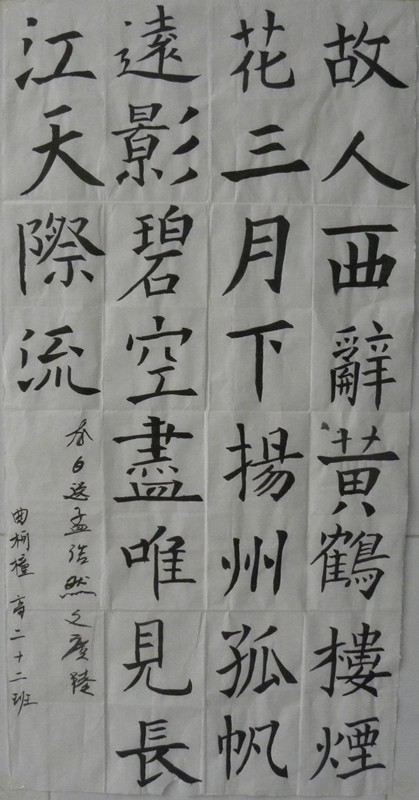 故人西辭黄鶴樓煙
花三月下揚州孤帆
遠影碧空盡唯見長
江天際流
李白送孟浩然之廣陵
曲 高二十二班